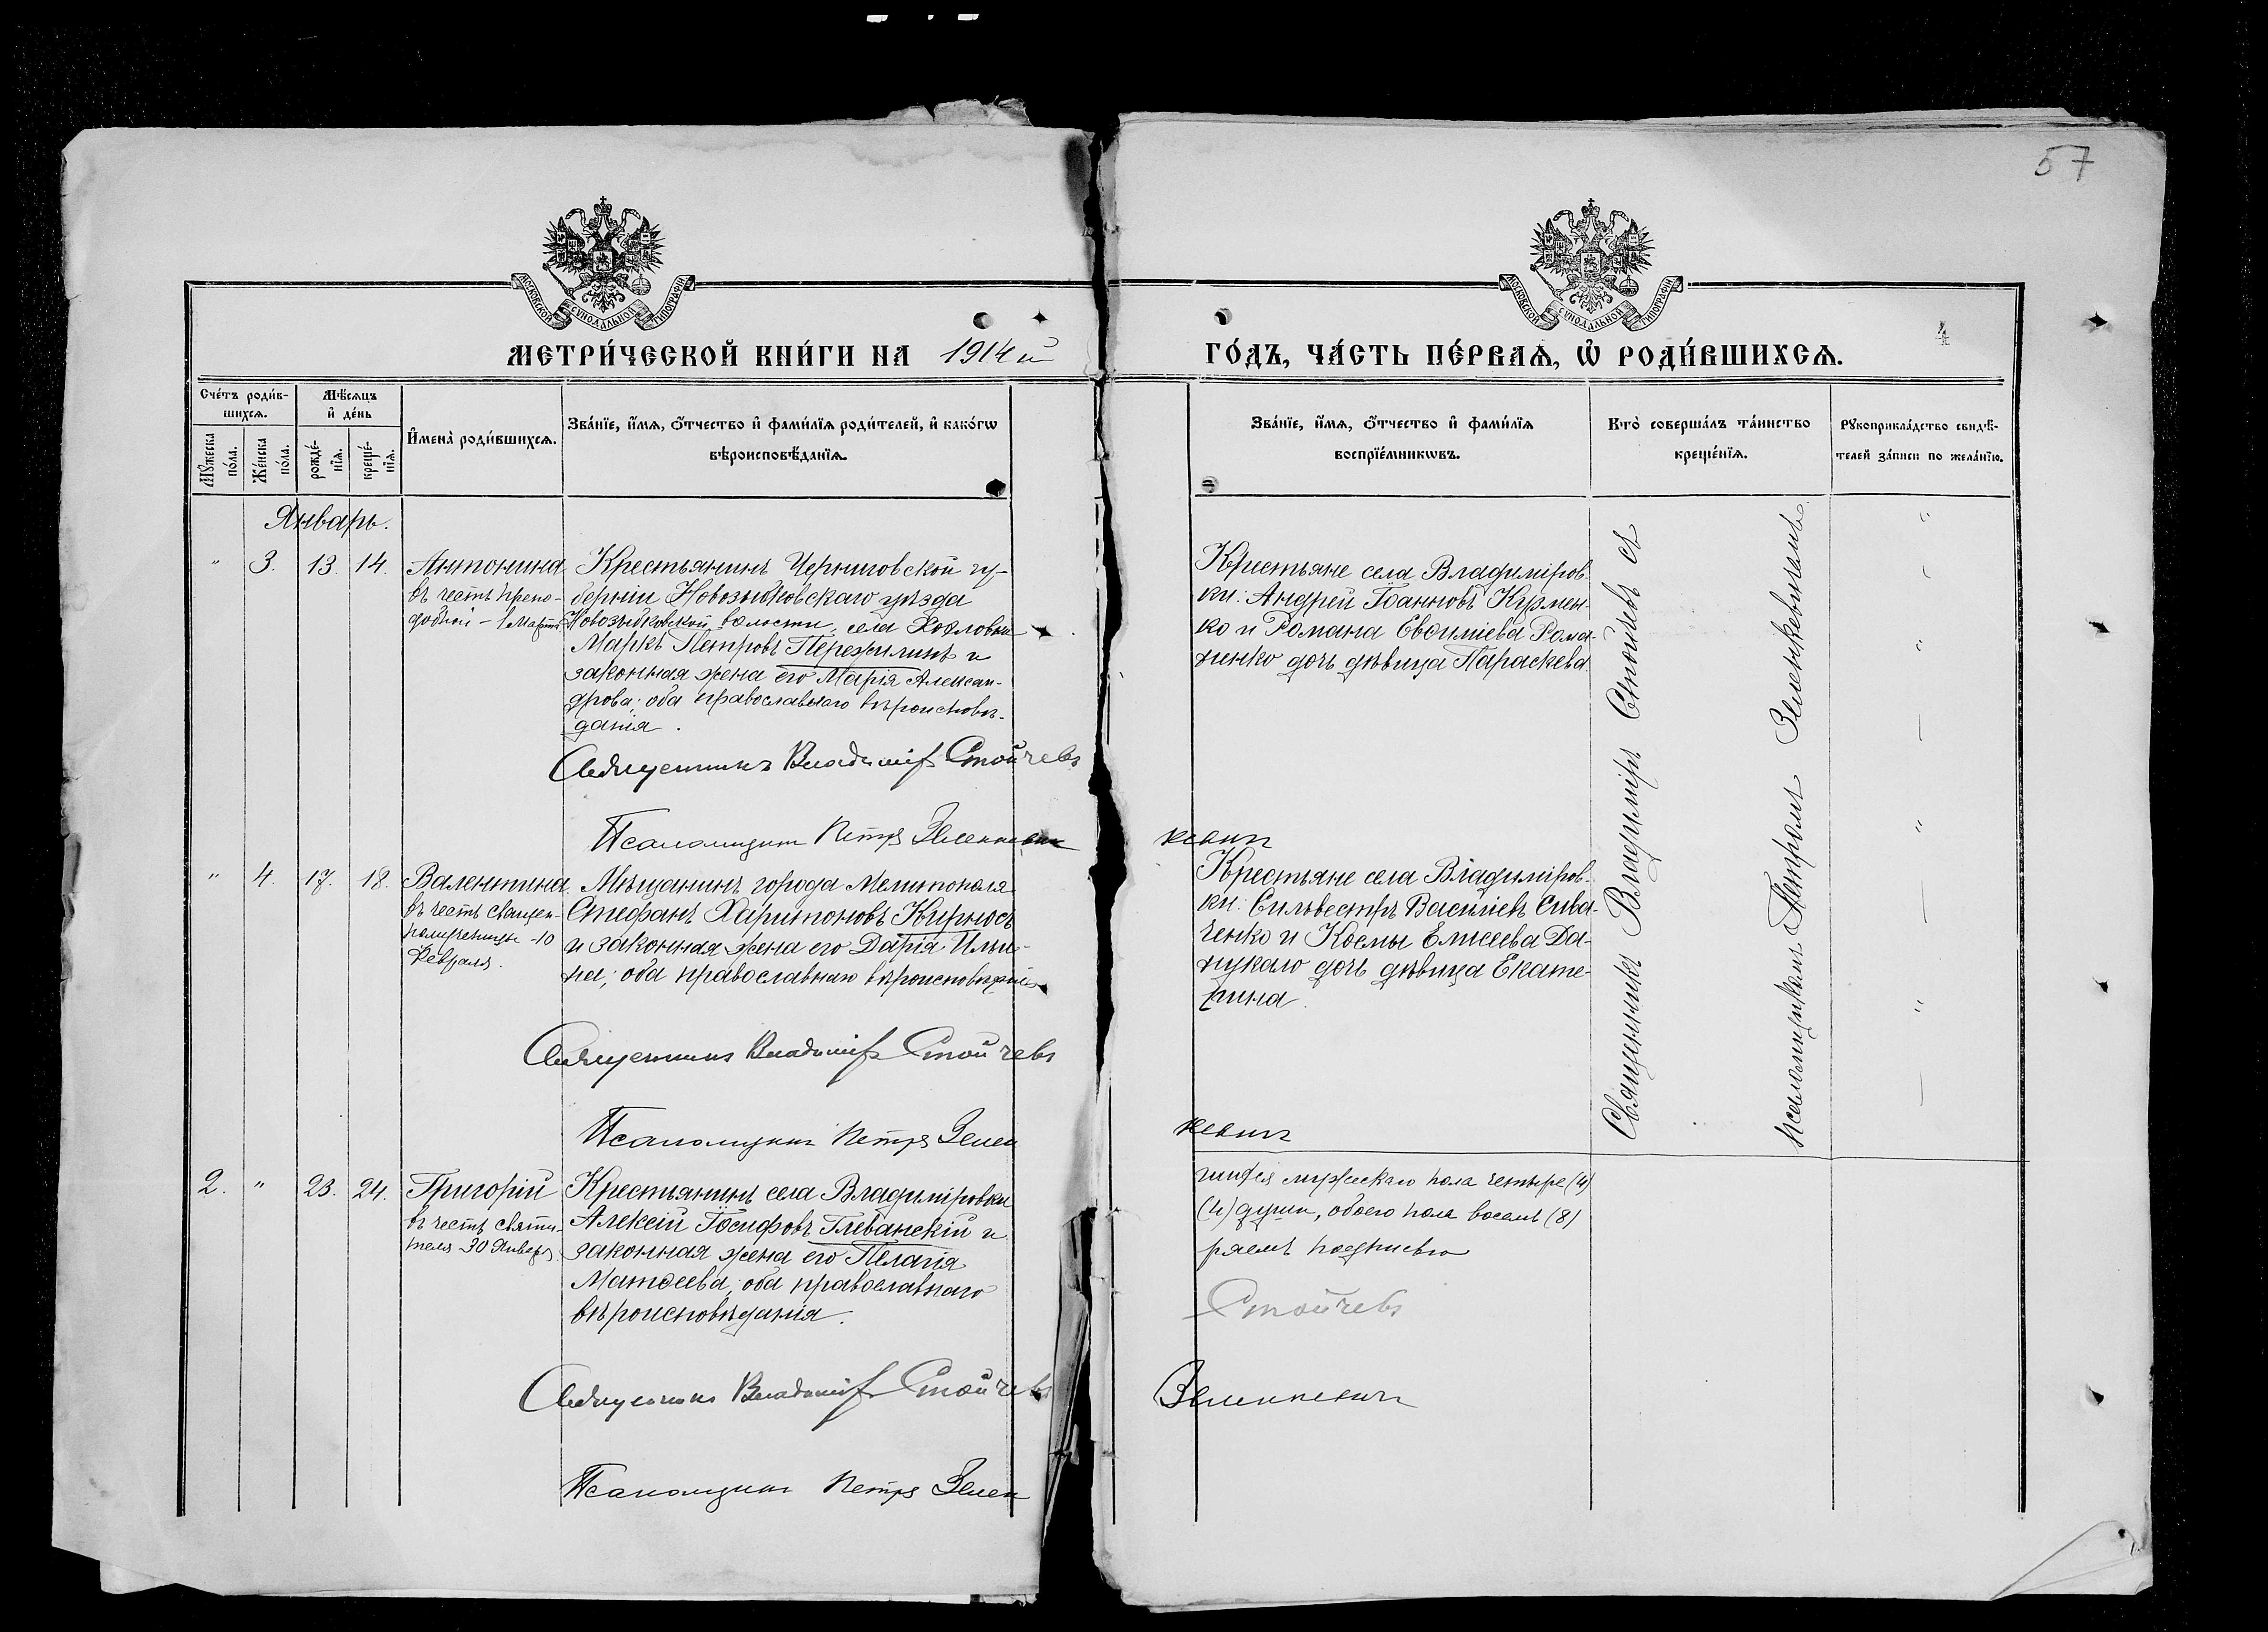 57
МОСКОВСКОЙ СУНОДАЛЬНОЙ ТИПОГРАФІИ
МОСКОВСКОЙ СУНОДАЛЬНОЙ ТИПОГРАФІИ
4
МЕТРИ́ЧЕСКОЙ КНИ́ГИ НА 1914й
ГО́ДЪ, ЧА́СТЬ ПЕ́РВАѦ, Ѡ҆ РОДИ́ВШИХСѦ.
Сче́тъ роди́в-
шихсѧ.
Мѣ́сѧцъ
и҆ де́нь
Мꙋ́жеска
по́ла.
Же́нска
по́ла.
рожде́-
нїѧ.
креще́-
нїѧ.
И҆мена̀ роди́вшихсѧ.
Зва́нїе, и҆́мѧ, ѻ҆́тчество и҆ фами́лїѧ роди́телей, и҆ како́гѡ
вѣроисповѣ́данїѧ.
Зва́нїе, и҆́мѧ, ѻ҆́тчество и҆ фами́лїѧ
воспрїе́мникѡвъ.
Кто̀ соверша́лъ та́инство
креще́нїѧ.
Рꙋкоприкла́дство свидѣ́-
телей за́писи по жела́нїю.
Январь.
" 3. 13. 14. Антонина
въ честь препо-
добной - 1 Марта
Крестьянинъ Черниговской гу-
берніи Новозыбковскаго уѣзда
Новозыбковской волости, села
Маркъ Петровъ Пережилинъ и
законная жена его Марія Алексан-
дрова; оба православнаго вѣроисповѣ-
данія.
Священникъ Владиміръ Стойчевъ
Псаломщикъ Петръ Зеленкевич
Крестьяне села Владиміров-
ки: Андрей Іоанновъ Курмен-
ко и Романа Евѳиміева Рома-
ненко дочь дѣвица Параскева
" 4. 17. 18. Валентина
въ честь священ-
номученицы - 10
Февраля.
Мѣщанинъ города Мелитополя
Стефанъ Харитоновъ Кирносъ
и законная жена его Дарія Ильи-
на; оба православнаго вѣроисповѣданія
Священникъ Владиміръ Стойчевъ
Псаломщикъ Петръ Зелен
кевич
Крестьяне села Владиміров-
ки: Сильвестръ Василіевъ Сива-
ченко и Космы Елисеева Да-
дочь дѣвица Екате-
рина.
кевич
Священникъ Владиміръ Стойчевъ съ
псаломщикомъ Петромъ Зеленкевичемъ.
2. " 23. 24. Григорій
въ честь святи-
теля - 30 Января
Крестьянинъ села Владиміровки
Алексій Іосифовъ Глеванскій и
законная жена его Пелагія
Матѳеева, оба православнаго
вѣроисповѣданія.
Священникъ Владиміръ Стойчевъ
Псаломщикъ Петръ Зелен
мужескаго пола четыре (4)
(4) души, обоего пола восемь (8)
ряемъ подписью
Стойчевъ
Зеленкевич